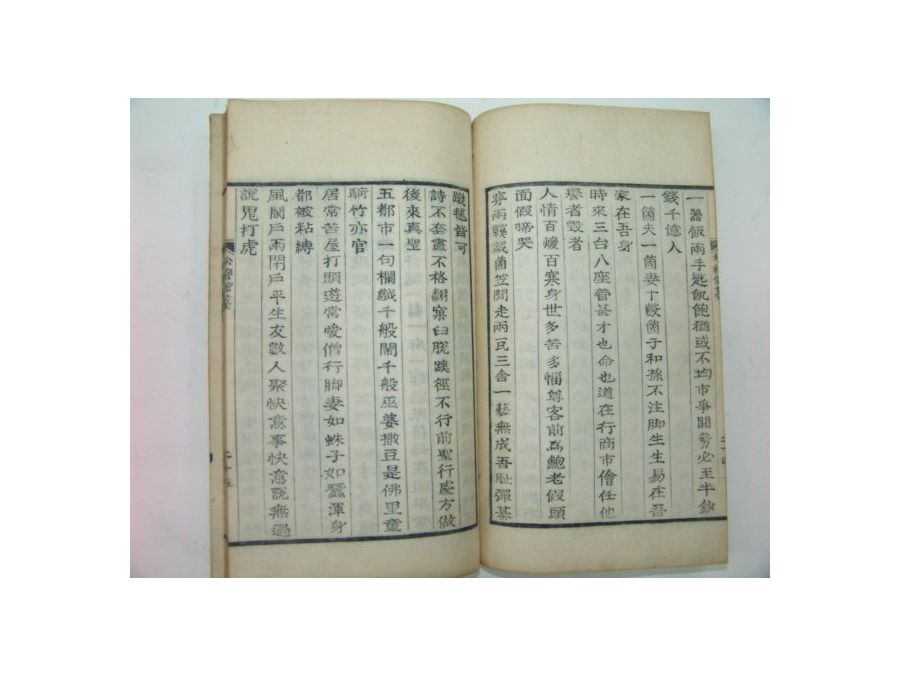 一器飯兩手匙飢飽猶或不均市爭鬪勢必至半鈔
錢千億人
一箇夫一箇妻十數箇子和孫不注脚生生易在吾
家在吾身
時來三台八座管甚才也命也道在行商市儈任他
譽者毀者
人情百煖百寒身世多苦多惱尊客前爲鮑老假頭
面假啼哭
兩箇笠閒走兩瓦三舍一藝無成吾耻彈棊
蹴毬皆可
詩不套畫不格翻窠臼脫蹊徑不行前聖行處方做
後來真聖
五都市一句欄千般鬧千般巫婆撒豆是佛里童
騎竹亦官
居常苦屋打頭遊常愛僧行脚妻如蛛子如蠶渾身
都被粘縛
風戶雨閉戶平生友數人聚快意事快意說無過
說鬼打虎